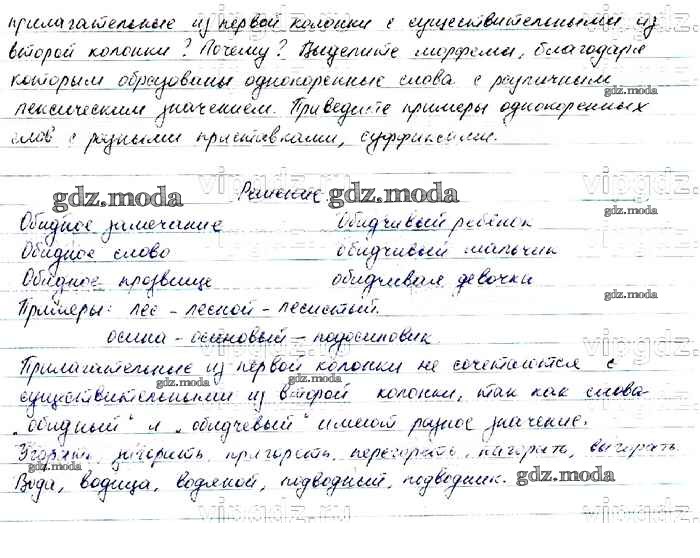 прилагательные из первой колонки с существительными из
второй колонки? Почему? Выделите морфемы, благодаря
которым образованы однокоренные слова с различным
лексическим значением. Приведите примеры однокоренных
слов с разными приставками, суффиксами.
Решение
Обидное замечание Обидчивый ребёнок
Обидное слово обидчивый мальчик
Обидное прозвище обидчивая девочка
Примеры: лес - лесной - лесистый.
осина - осиновый - подосиновик.
Прилагательные из первой колонки не сочетаются с
существительными из второй колонки, так как слова
„обидный" и „обидчевый" имеют разное значение.
Угорать, загорать, пригорать, перегорать, нагорать, выгорать.
Вода, водица, водяной, подводный, подводник.
gdz.moda
gdz.moda
gdz.moda
gdz.moda
gdz.moda
gdz.moda
gdz.moda
gdz.moda
gdz.moda
vipgdz.ru
vipgdz.ru